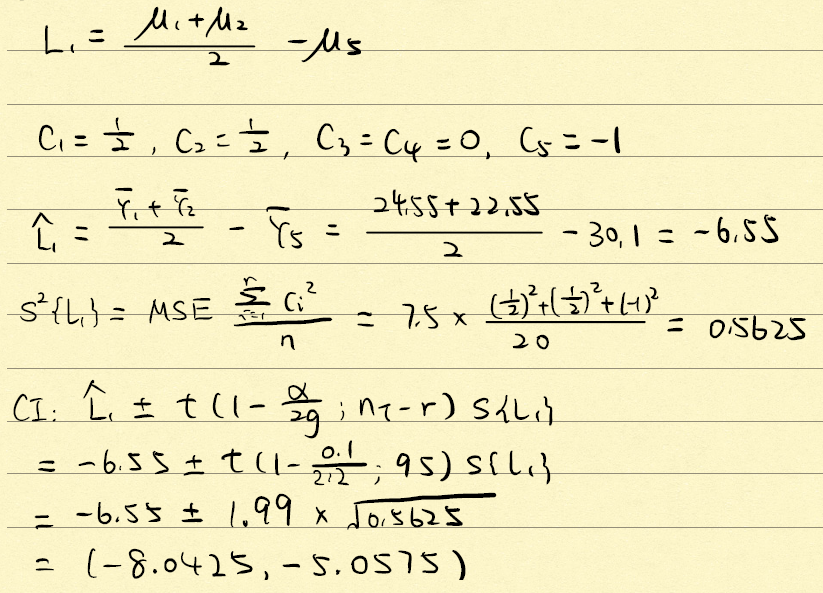 L₁ = (μ₁ + μ₂)/2 - μ₅
C₁ = 1/2, C₂ = 1/2, C₃ = C₄ = 0, C₅ = -1
L̂₁ = (Ȳ₁ + Ȳ₂)/2 - Ȳ₅ = (24.55 + 22.55)/2 - 30.1 = -6.55
S²{L₁} = MSE (Σᵢ₌₁ʳ Cᵢ²)/n = 7.5 × ((1/2)² + (1/2)² + (-1)²)/20 = 0.5625
CI: L̂₁ ± t(1 - α/2g ; n_T - r) S{L₁}
= -6.55 ± t(1 - 0.1/2·2 ; 95) S{L₁}
= -6.55 ± 1.99 × √0.5625
= (-8.0425, -5.0575)